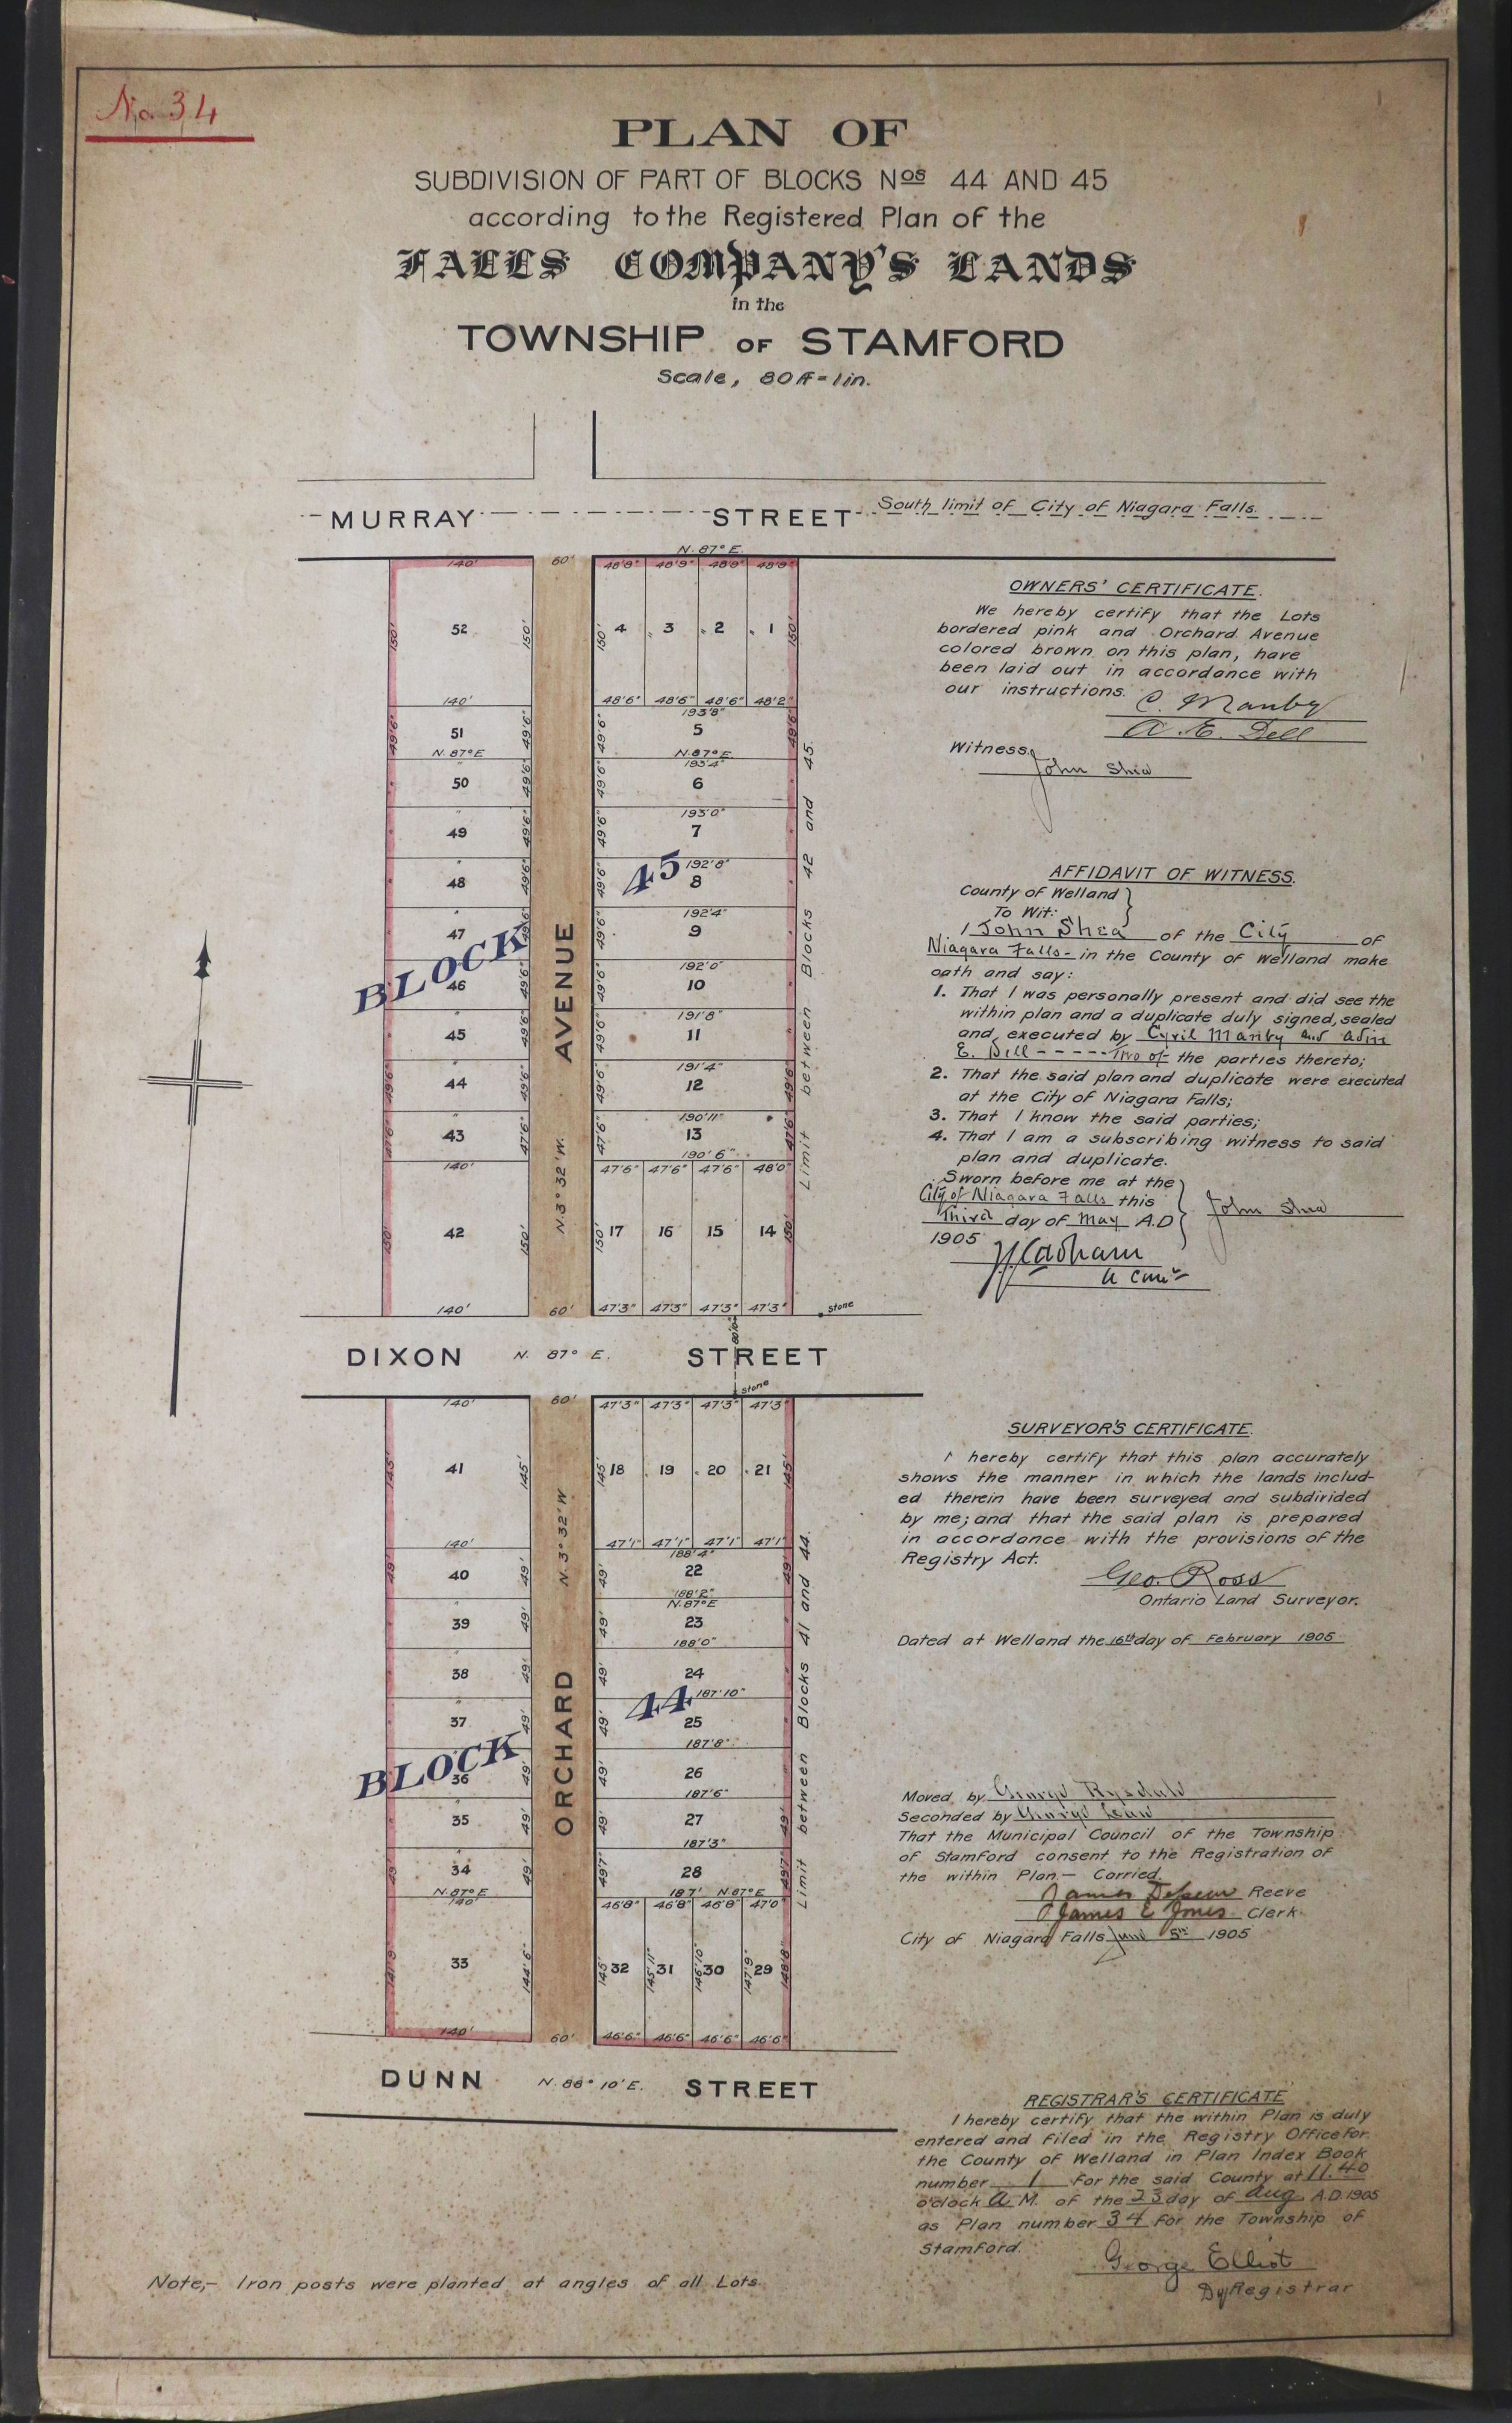 No. 34
PLAN OF
SUBDIVISION OF PART OF BLOCKS Nos 44 AND 45
according to the Registered Plan of the
FALLS COMPANY'S LANDS
in the
TOWNSHIP OF STAMFORD
Scale, 80 ft = 1 in.
MURRAY STREET South limit of City of Niagara Falls.
N. 87° E.
140' 60' 48'9" 48'9" 48'9" 48'9"
150' 52 150' 150' 4 " 3 " 2 " 1 150'
140' 48'6" 48'6" 48'6" 48'2"
193'8"
49'6" 51 49'6" 49'6" 5 49'6"
N. 87° E N. 87° E.
193'4"
50 49'6" 49'6" 6
193'0"
49 49'6" 49'6" 7
192'8"
48 49'6" 49'6" 8
192'4"
47 49'6" 49'6" 9
192'0"
46 49'6" 49'6" 10
191'8"
45 49'6" 49'6" 11
191'4"
49'6" 44 49'6" 49'6" 12 49'6"
190'11"
47'6" 43 47'6" 47'6" 13 47'6"
190'6"
140' 47'6" 47'6" 47'6" 48'0"
150' 42 150' 150' 17 16 15 14 150'
140' 60' 47'3" 47'3" 47'3" 47'3" stone
BLOCK 45
AVENUE
N. 3° 32' W.
Limit between Blocks 42 and 45.
DIXON N. 87° E. STREET
stone
140' 60' 47'3" 47'3" 47'3" 47'3"
145' 41 145' 145' 18 19 20 21 145'
140' 47'1" 47'1" 47'1" 47'1"
188'4"
49' 40 49' 49' 22 49'
188'2"
N. 87° E
39 49' 49' 23
188'0"
38 49' 49' 24
187'10"
37 49' 49' 25
187'8"
36 49' 49' 26
187'6"
35 49' 49' 27 49'
187'3"
49' 34 49' 49'7" 28 49'7"
N. 87° E 187' N. 87° E
140' 46'8" 46'8" 46'8" 47'0"
141'9" 33 144'6" 145' 32 145'11" 31 146'10" 30 147'9" 29 148'8"
140' 60' 46'6" 46'6" 46'6" 46'6"
BLOCK 44
N. 3° 32' W
ORCHARD
Limit between Blocks 41 and 44.
DUNN N. 86° 10' E. STREET
Note;- Iron posts were planted at angles of all Lots.
OWNERS' CERTIFICATE.
We hereby certify that the Lots
bordered pink and Orchard Avenue
colored brown on this plan, have
been laid out in accordance with
our instructions.
C. Manby
A. E. Dell
Witness,
John Shea
AFFIDAVIT OF WITNESS.
County of Welland }
To Wit:
I John Shea of the City of
Niagara Falls - in the County of Welland make
oath and say:
1. That I was personally present and did see the
within plan and a duplicate duly signed, sealed
and executed by Cyril Manby and
E. Dell - - - - - Two of the parties thereto;
2. That the said plan and duplicate were executed
at the City of Niagara Falls;
3. That I know the said parties;
4. That I am a subscribing witness to said
plan and duplicate.
Sworn before me at the
City of Niagara Falls this
Third day of May A.D
1905
John Shea
SURVEYOR'S CERTIFICATE.
I hereby certify that this plan accurately
shows the manner in which the lands includ-
ed therein have been surveyed and subdivided
by me; and that the said plan is prepared
in accordance with the provisions of the
Registry Act.
Geo. Ross
Ontario Land Surveyor.
Dated at Welland the 16th day of February 1905
Moved by George
Seconded by George
That the Municipal Council of the Township
of Stamford consent to the Registration of
the within Plan - Carried.
James Reeve
James E Jones Clerk
City of Niagara Falls June 5th 1905
REGISTRAR'S CERTIFICATE
I hereby certify that the within Plan is duly
entered and filed in the Registry Office for
the County of Welland in Plan Index Book
number 1 for the said County at 11.40
o'clock A. M. of the 23 day of Aug. A.D. 1905
as Plan number 34 for the Township of
Stamford.
George Elliot
Dy Registrar